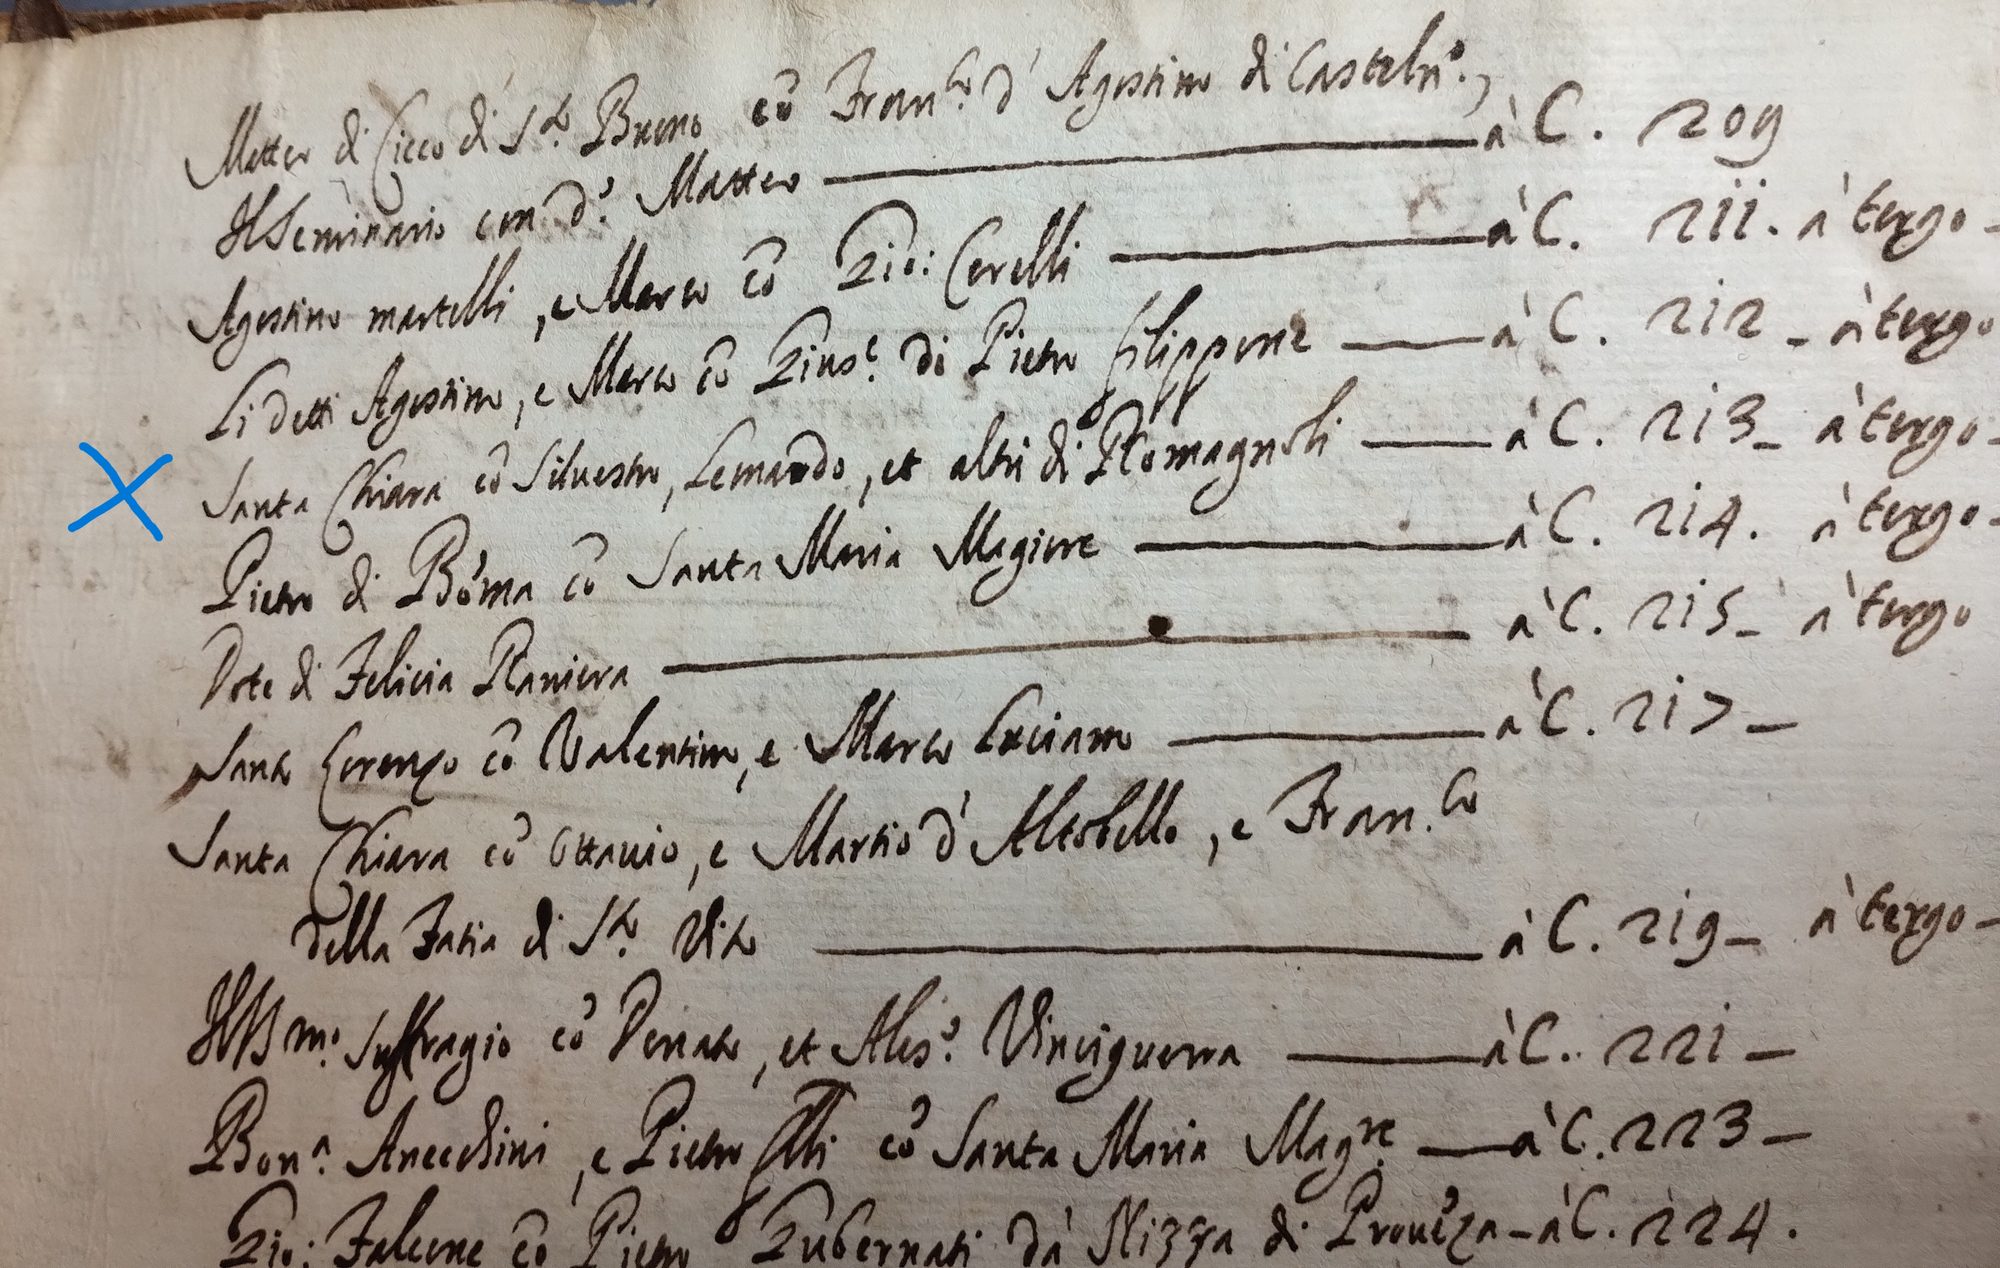 Matteo di Cicco di S.to Buono cō Fran.co d'Agostino di Casteln.o,
à C. 209
Il Seminario con d.o Matteo
Agostino martelli, e Marco cō Gio: Cerelli à C. 211. à tergo -
Li detti Agostino, e Marco cō Gius.e di Pietro filippone à C. 212 - à tergo
Santa Chiara cō Silvestro, Leonardo, et altri di Romagnoli à C. 213 - à tergo -
Pietro di Boma cō Santa Maria Magiore à C. 214. à tergo -
Dote di Felicia Raniera à C. 215 - à tergo
Santo Lorenzo cō Valentino, e Marco Luciano à C. 217 -
Santa Chiara cō Ottavio, e Martio d'Altobello, e Fran.co
della Fatia di S.to Vito à C. 219 - à tergo -
Il B m.o Suffragio cō Donato, et Ales.o Vinciguerra à C. 221 -
Bon.a Anecchini, e Pietro flli cō Santa Maria Mag.re à C. 223 -
Gio: Falcone cō Pietro Gubernati dà Nizza di Provēza - à C. 224.